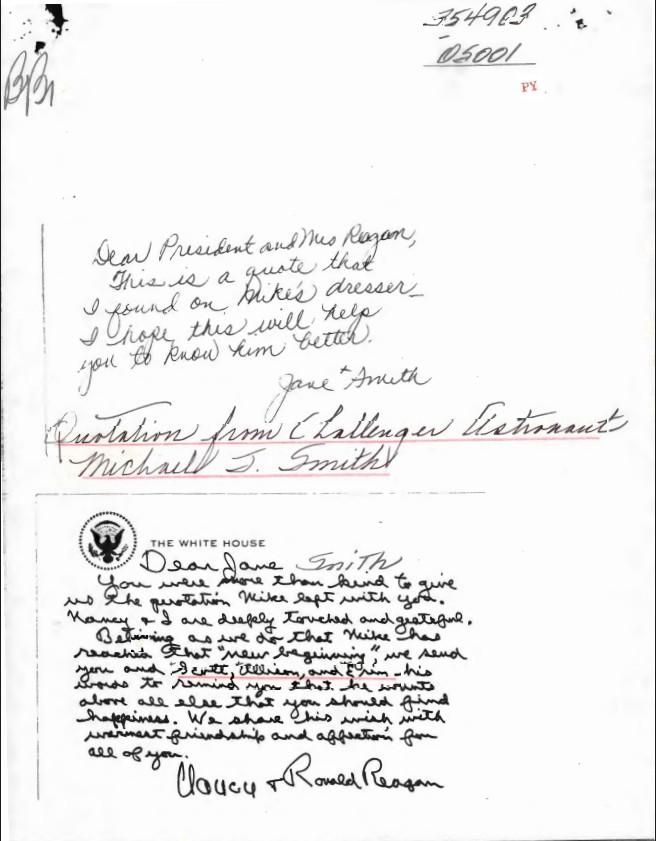 354983
05001
PY
Dear President and Mrs Reagan,
This is a quote that
I found on Mike's dresser—
I hope this will help
you to know him better.
Jane Smith
Quotation from Challenger Astronaut
Michael J. Smith
THE WHITE HOUSE
Dear Jane Smith
You were more than kind to give
us the quotation Mike left with you.
Nancy & I are deeply touched and grateful.
Believing as we do that Mike has
reached that "new beginning", we send
you and Scott, Allison, and Erin - his
words to remind you that he wants
above all else that you should find
happiness. We share his wish with
warmest friendship and affection for
all of you.
Nancy & Ronald Reagan